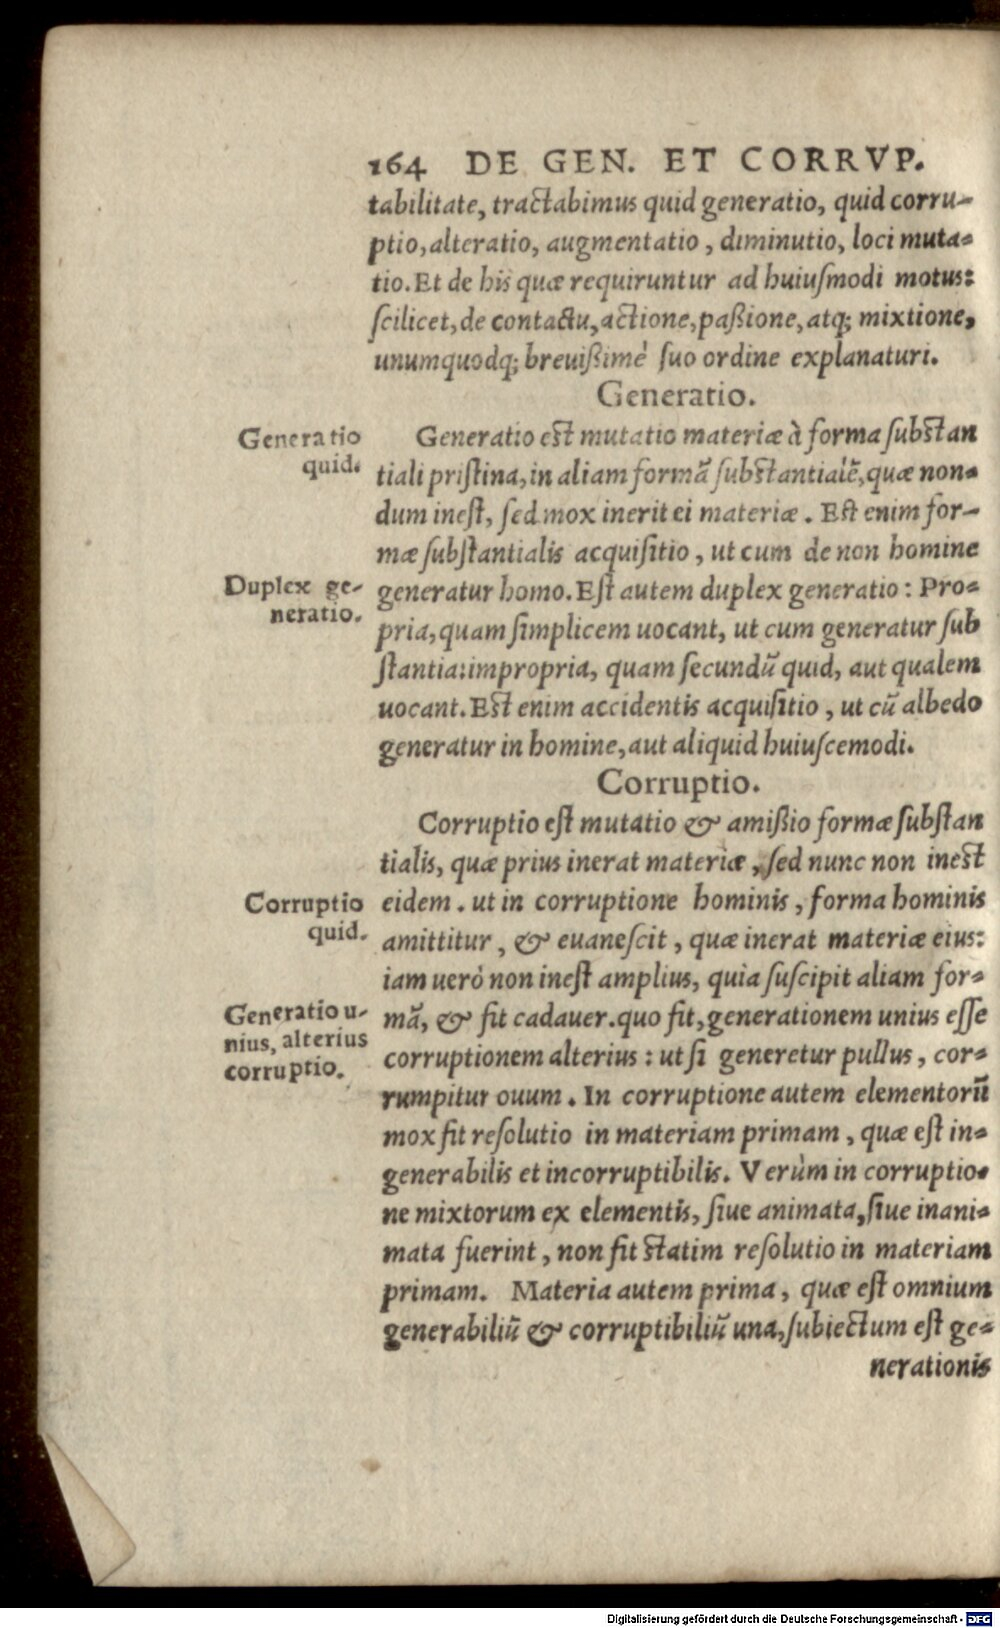 164 DE GEN. ET CORRVP.
tabilitate, tractabimus quid generatio, quid corru-
ptio, alteratio, augmentatio, diminutio, loci muta-
tio. Et de his quæ requiruntur ad huiuſmodi motus:
ſcilicet, de contactu, actione, paßione, atq; mixtione,
unumquodq; breuißimè ſuo ordine explanaturi.
Generatio.
Generatio
quid.
Generatio est mutatio materiæ à forma ſubstan
tiali priſtina, in aliam formã ſubstantialẽ, quæ non-
dum ineſt, ſed mox inerit ei materiæ. Est enim for-
mæ ſubſtantialis acquiſitio, ut cum de non homine
Duplex ge-
neratio.
generatur homo. Eſt autem duplex generatio: Pro-
pria, quam ſimplicem uocant, ut cum generatur ſub
ſtantia: impropria, quam ſecundũ quid, aut qualem
uocant. Est enim accidentis acquiſitio, ut cũ albedo
generatur in homine, aut aliquid huiuſcemodi.
Corruptio.
Corruptio eſt mutatio & amißio formæ ſubſtan
tialis, quæ prius inerat materiæ, ſed nunc non inest
Corruptio
quid.
eidem. ut in corruptione hominis, forma hominis
amittitur, & euaneſcit, quæ inerat materiæ eius:
iam uerò non ineſt amplius, quia ſuſcipit aliam for-
Generatio u-
nius, alterius
corruptio.
mã, & fit cadauer. quo fit, generationem unius eſſe
corruptionem alterius: ut ſi generetur pullus, cor-
rumpitur ouum. In corruptione autem elementorũ
mox fit reſolutio in materiam primam, quæ eſt in-
generabilis et incorruptibilis. Verùm in corruptio-
ne mixtorum ex elementis, ſiue animata, ſiue inani-
mata fuerint, non fit statim reſolutio in materiam
primam. Materia autem prima, quæ eſt omnium
generabiliũ & corruptibiliũ una, ſubiectum eſt ge-
nerationis
Digitalisierung gefördert durch die Deutsche Forschungsgemeinschaft - DFG